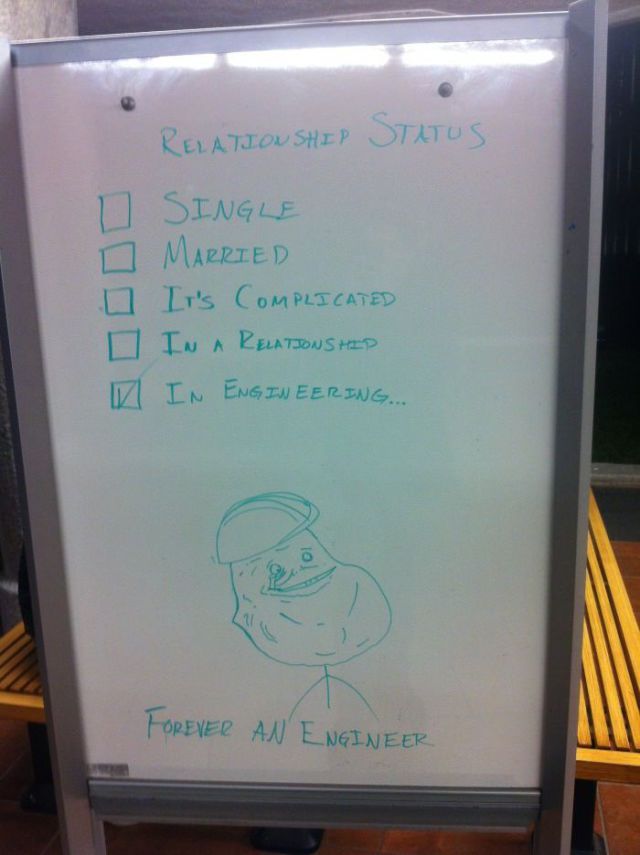 RELATIONSHIP STATUS
SINGLE
MARRIED
IT'S COMPLICATED
IN A RELATIONSHIP
IN ENGINEERING...
FOREVER AN ENGINEER